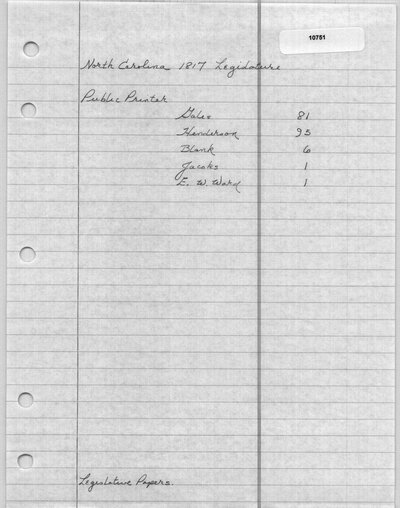 10751
North Carolina 1817 Legislature
Public Printer
Gales 81
Henderson 95
Blank 6
Jacobs 1
E. W. Ward 1
Legislative Papers.